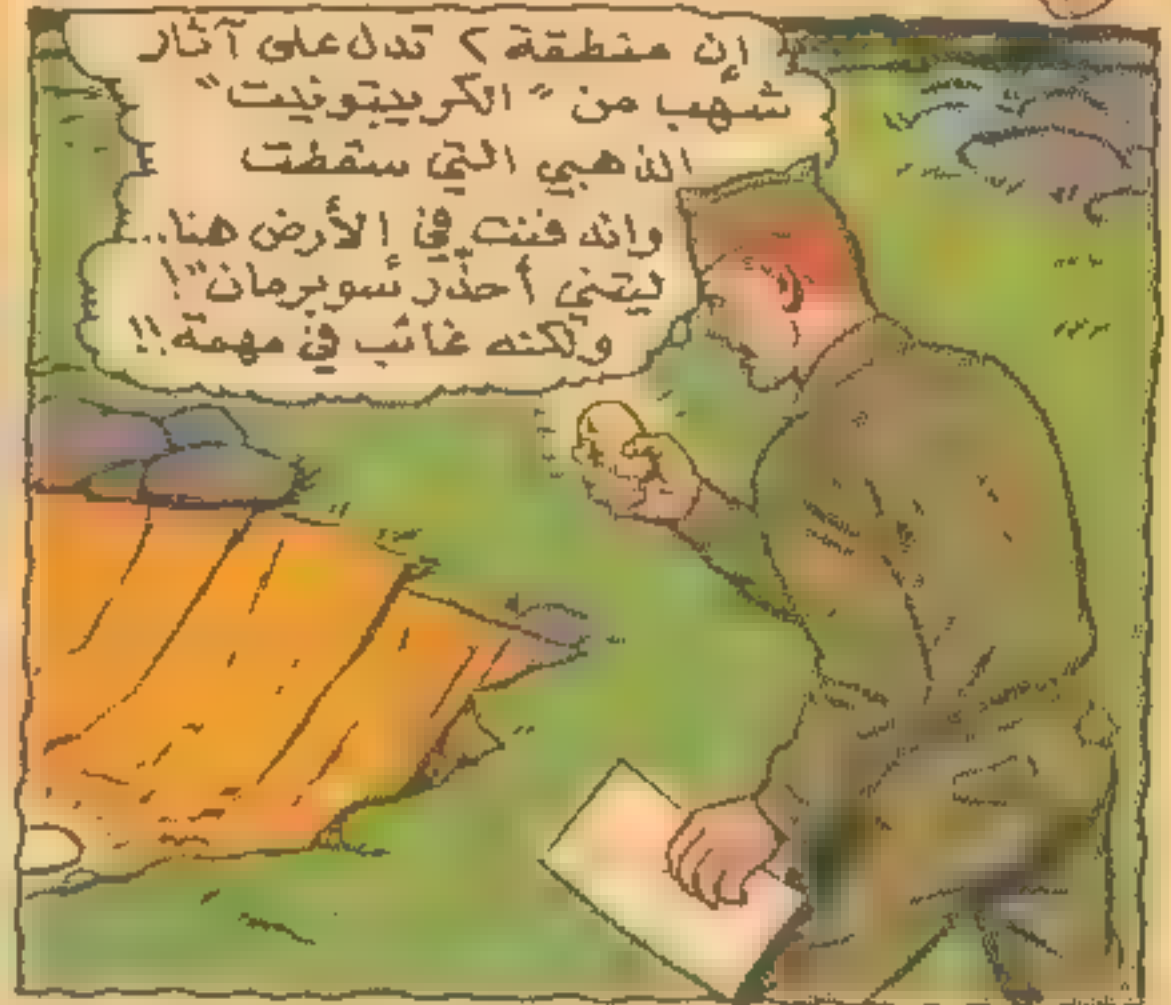 إن منطقة ٢ تدل على آثار
شهب من "الكريبتونيت"
الذهبي التي سقطت
واندفنت في الأرض هنا..
ليتني أحذر سوبرمان"!
ولكنه غائب في مهمة!!